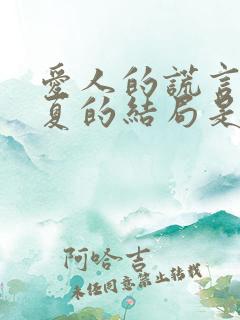 愛人的謊言
夏的結局是
阿哈吉
未经同意禁止转载